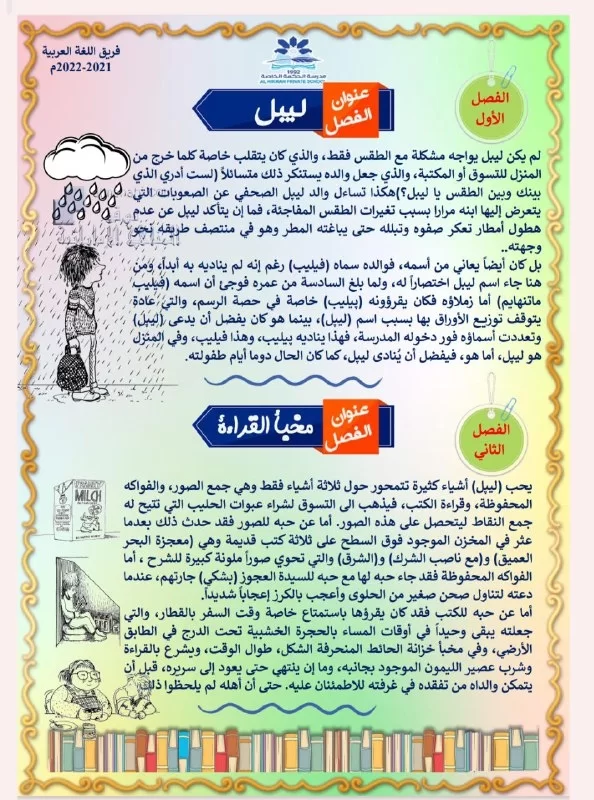 فريق اللغة العربية
2021-2022م
1992
مدرسة الحكمة الخاصة
AL HIKMAH PRIVATE SCHOOL
الفصل
الأول
عنوان
الفصل
ليبل
لم يكن ليبل يواجه مشكلة مع الطقس فقط، والذي كان يتقلب خاصة كلما خرج من
المنزل للتسوق أو المكتبة، والذي جعل والده يستنكر ذلك متسائلاً (لست أدري الذي
بينك وبين الطقس يا ليبل؟)هكذا تساءل والد ليبل الصحفي عن الصعوبات التي
يتعرض إليها ابنه مرارا بسبب تغيرات الطقس المفاجئة، فما إن يتأكد ليبل عن عدم
هطول أمطار تعكر صفوه وتبلله حتى يباغته المطر وهو في منتصف طريقه نحو
وجهته..
بل كان أيضاً يعاني من أسمه، فوالده سماه (فيليب) رغم إنه لم يناديه به أبداً، ومن
هنا جاء اسم ليبل اختصاراً له، ولما بلغ السادسة من عمره فوجئ أن اسمه (فيليب
ماتنهايم) أما زملاؤه فكان يقرؤونه (بيليب) خاصة في حصة الرسم، والتي عادة
يتوقف توزيع الأوراق بها بسبب اسم (ليبل)، بينما هو كان يفضل أن يدعى (ليبل)
وتعددت أسماؤه فور دخوله المدرسة، فهذا يناديه بيليب، وهذا فيليب، وفي المنزل
هو ليبل، أما هو، فيفضل أن يُنادى ليبل، كما كان الحال دوما أيام طفولته.
الفصل
الثاني
عنوان
الفصل
مخبأ القراءة
يحب (ليبل) أشياء كثيرة تتمحور حول ثلاثة أشياء فقط وهي جمع الصور، والفواكه
المحفوظة، وقراءة الكتب، فيذهب الى التسوق لشراء عبوات الحليب التي تتيح له
جمع النقاط ليتحصل على هذه الصور. أما عن حبه للصور فقد حدث ذلك بعدما
عثر في المخزن الموجود فوق السطح على ثلاثة كتب قديمة وهي (معجزة البحر
العميق) و(مع ناصب الشرك) و(الشرق) والتي تحوي صوراً ملونة كبيرة للشرح ، أما
الفواكه المحفوظة فقد جاء حبه لها مع حبه للسيدة العجوز (يشكي) جارتهم، عندما
دعته لتناول صحن صغير من الحلوى وأعجب بالكرز إعجاباً شديداً.
أما عن حبه للكتب فقد كان يقرؤها باستمتاع خاصة وقت السفر بالقطار، والتي
جعلته يبقى وحيداً في أوقات المساء بالحجرة الخشبية تحت الدرج في الطابق
الأرضي، وفي مخبأ خزانة الحائط المنحرفة الشكل، طوال الوقت، ويشرع بالقراءة
وشرب عصير الليمون الموجود بجانبه، وما إن ينتهي حتى يعود إلى سريره، قبل أن
يتمكن والداه من تفقده في غرفته للاطمئنان عليه. حتى أن أهله لم يلحظوا ذلك
MILCH